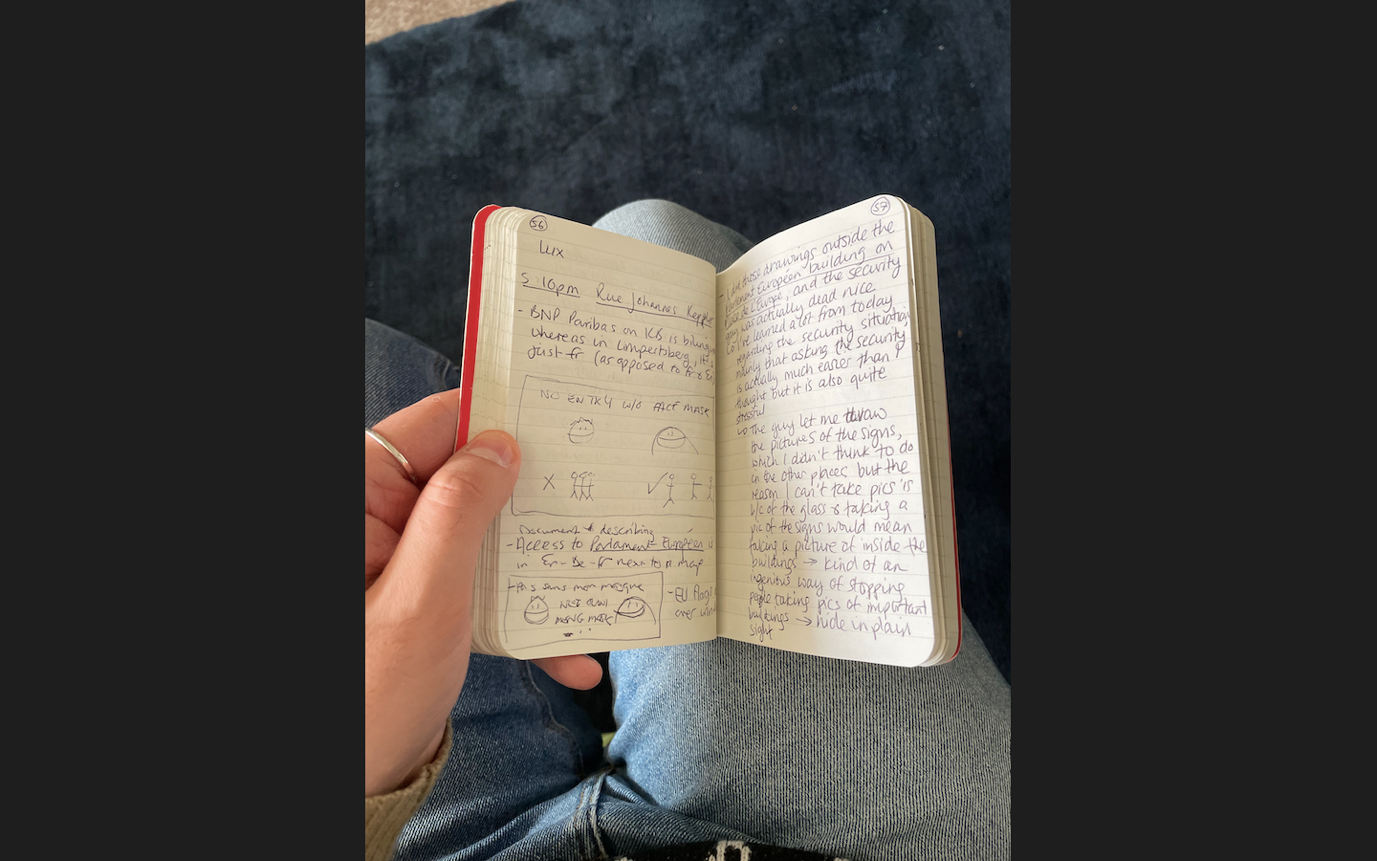 56
Lux
5:10pm Rue Johannes Kepple
- BNP Paribas on KB is biling
whereas in Limpertsberg, it's
just fr (as opposed to fr & E
NO ENTRY W/O FACE MASK
X ✓
Document & describing
- Access to Parlament Européen i
in En-De-fr next to a map
- Pas sans mon masque
NËT OUNI
MENG MASK
- EU flags
over win
57
- I did those drawings outside the
Parlement Européen building on
Place de l'Europe, and the security
guy was actually dead nice
↳ I've learned a lot from today
regarding the security situation
mainly that asking the security
is actually much easier than I
thought but it is also quite
stressful
↳ The guy let me draw
the pictures of the signs,
which I didn't think to do
in the other places but the
reason I can't take pics is
b/c of the glass & taking a
pic of the signs would mean
taking a picture of inside the
buildings → kind of an
ingenious way of stopping
people taking pics of important
buildings → hide in plain
sight